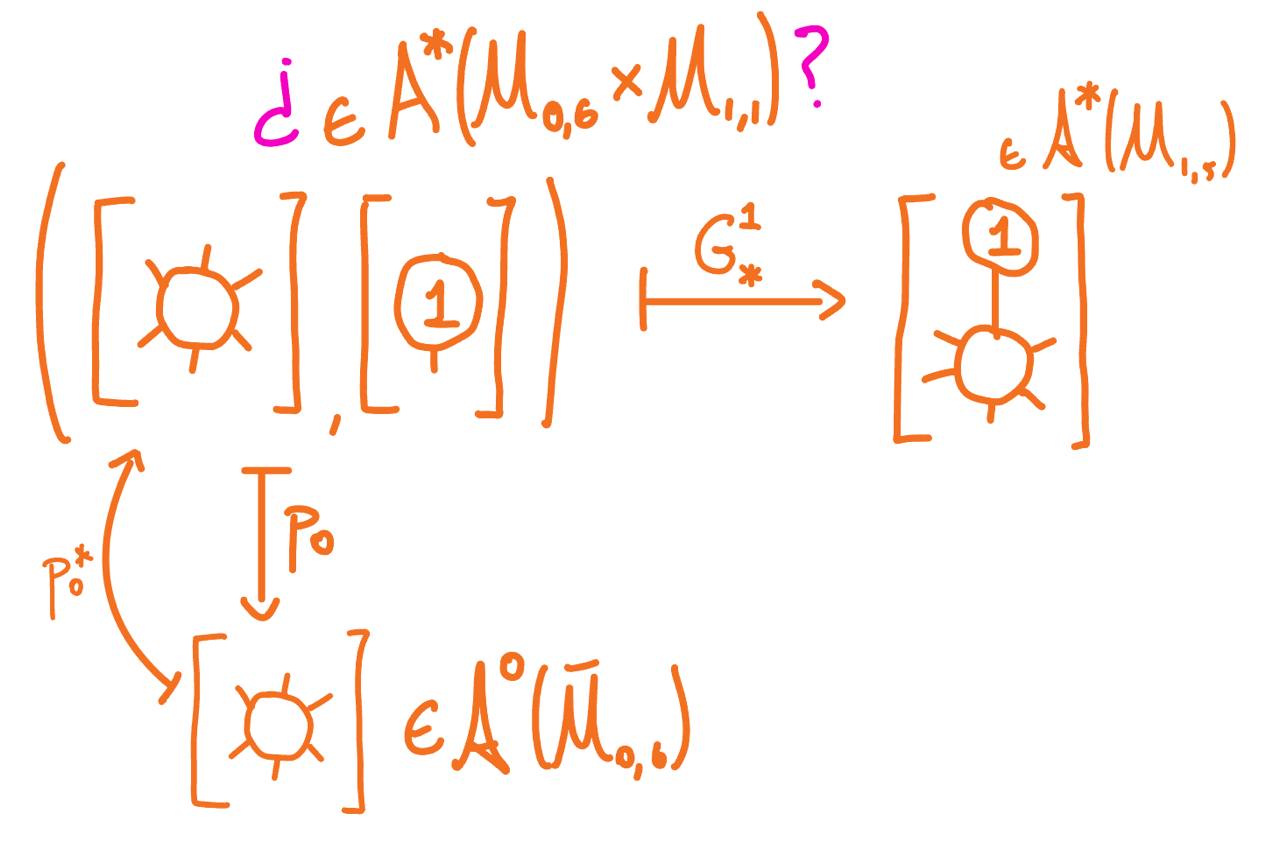 ¿ ∈ A*(M₀,₆ × M₁,₁)?
∈ A*(M₁,₅)
([ ], [1]) G¹* [1]
P₀* P₀
[ ] ∈ A⁰(M̄₀,₆)